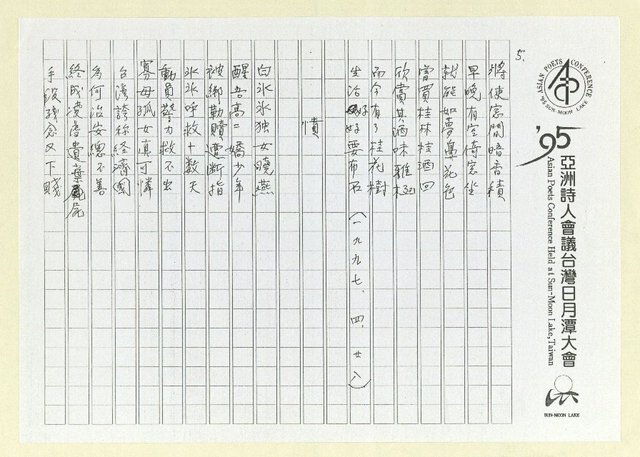 5.
將使窗間暗香積
早晚有空倚窗坐
就能如夢算花色
嘗買桂林桂酒回
欣賞其酒味雅極
而今有了桂花樹
生活好好要布石
(一九九七、四、廿八)
憤
白冰冰独女曉燕
醒吾高二嬌少年
被綁勒贖遭断指
冰冰呼救十數天
動員警力救不出
寡母孤女真可憐
台灣誇称經濟國
為何治安總不善
終成凌虐糞葉屍
手段残忍又下賤
ASIAN POETS CONFERENCE
'95 SUN-MOON LAKE
'95
亞洲詩人會議台灣日月潭大會
Asian Poets Conference Held at Sun-Moon Lake, Taiwan
SUN-MOON LAKE